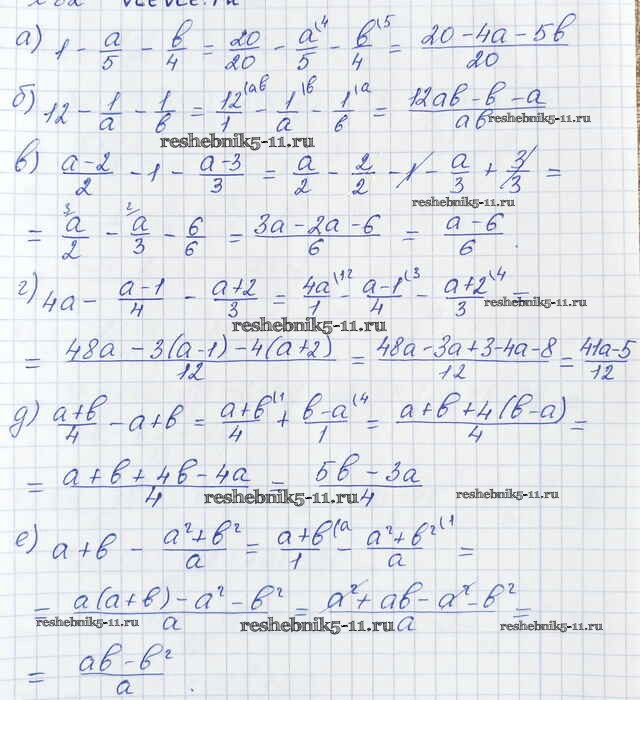 а) 1 - a/5 - b/4 = 20/20 - a/5 \4 - b/4 \5 = (20 - 4a - 5b)/20
б) 12 - 1/a - 1/b = 12/1 \ab - 1/a \b - 1/b \a = (12ab - b - a)/ab
reshebnik5-11.ru
reshebnik5-11.ru
в) (a-2)/2 - 1 - (a-3)/3 = a/2 - 2/2 - 1 - a/3 + 3/3 =
reshebnik5-11.ru
= 3/ a/2 - 2/ a/3 - 6/6 = (3a - 2a - 6)/6 = (a - 6)/6.
г) 4a - (a-1)/4 - (a+2)/3 = 4a/1 \12 - (a-1)/4 \3 - (a+2)/3 \4 =
reshebnik5-11.ru
reshebnik5-11.ru
= (48a - 3(a-1) - 4(a+2))/12 = (48a - 3a + 3 - 4a - 8)/12 = (41a - 5)/12
д) (a+b)/4 - a + b = (a+b)/4 \1 + (b-a)/1 \4 = (a + b + 4(b-a))/4 =
= (a + b + 4b - 4a)/4 = (5b - 3a)/4
reshebnik5-11.ru
reshebnik5-11.ru
е) a + b - (a² + b²)/a = (a+b)/1 \a - (a² + b²)/a \1 =
= (a(a+b) - a² - b²)/a = (a² + ab - a² - b²)/a =
reshebnik5-11.ru
reshebnik5-11.ru
reshebnik5-11.ru
= (ab - b²)/a.